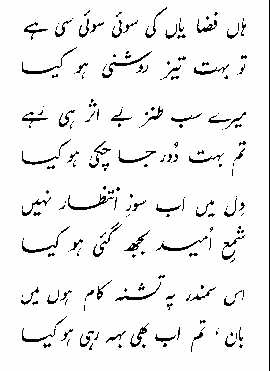 ہاں فضا یاں کی سوئی سوئی سی ہے
تو بہت تیز روشنی ہو کیا
میرے سب طنز بے اثر ہی رہے
تم بہت دُور جا چکی ہو کیا
دل میں اب سوزِ انتظار نہیں
شمعِ اُمید بجھ گئی ہو کیا
اس سمندر پہ تشنہ کام ہوں میں
بان، تم اب بھی بہہ رہی ہو کیا